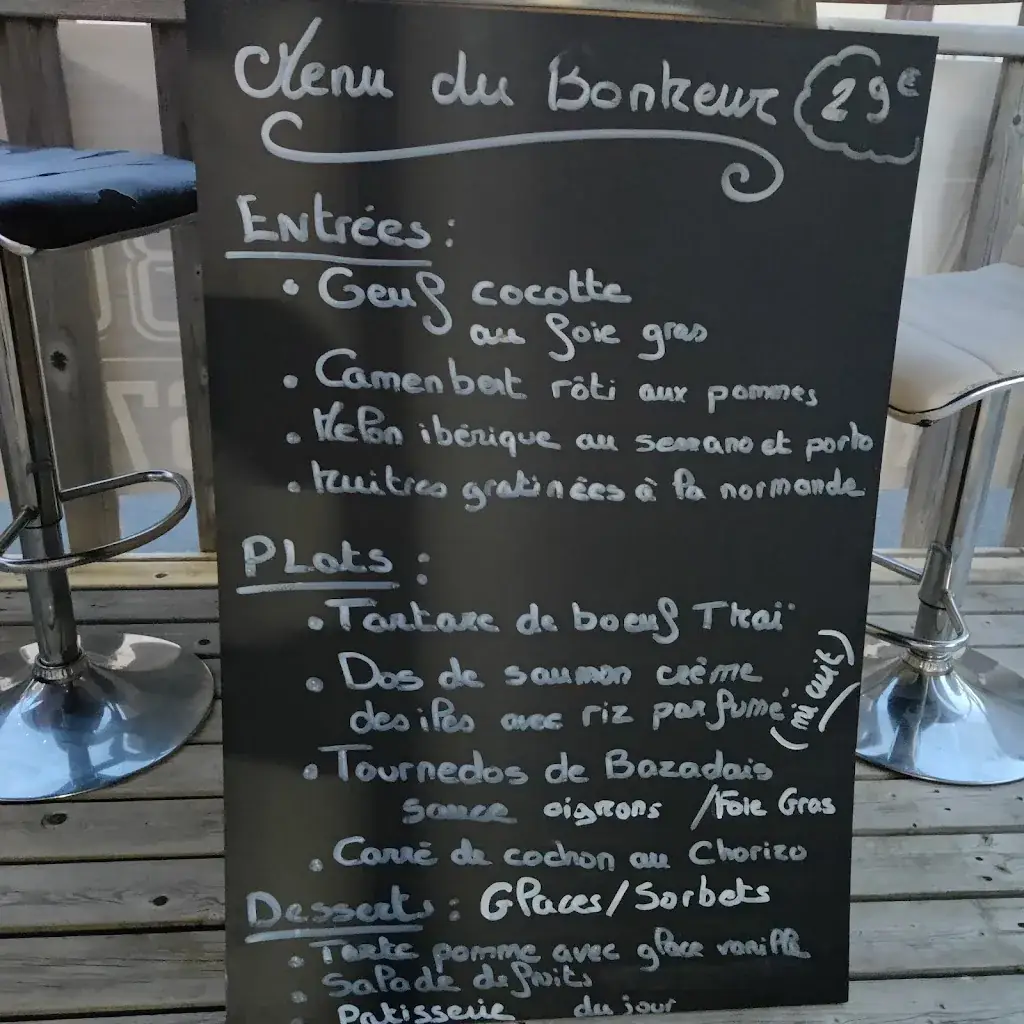 Menu du Bonheur 29€
Entrées :
• Oeuf cocotte
au foie gras
• Camenbert rôti aux pommes
• Melon ibérique au serrano et porto
• huitres gratinées à la normande
PLats :
• Tartare de boeuf Thaï
• Dos de saumon crème
des iles avec riz parfumé (mi cuit)
• Tournedos de Bazadais
sauce oignons /Foie Gras
• Carré de cochon au Chorizo
Desserts : Glaces/Sorbets
• Tarte pomme avec glace vanille
• Salade de fruits
Patisserie du jour